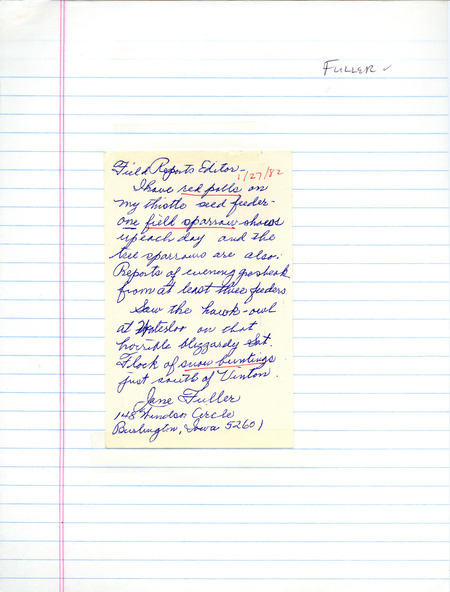 FULLER ✓
Field Reports Editor-
1/27/82
I have red polls on
my thistle seed feeder-
one field sparrow shows
up each day and the
tree sparrows are also.
Reports of evening grosbeak
from at least three feeders.
Saw the hawk-owl
at Waterloo on that
horrible blizzardy Sat.
Flock of snow buntings
just south of Vinton.
Jane Fuller
148 Windsor Circle
Burlington, Iowa 52601